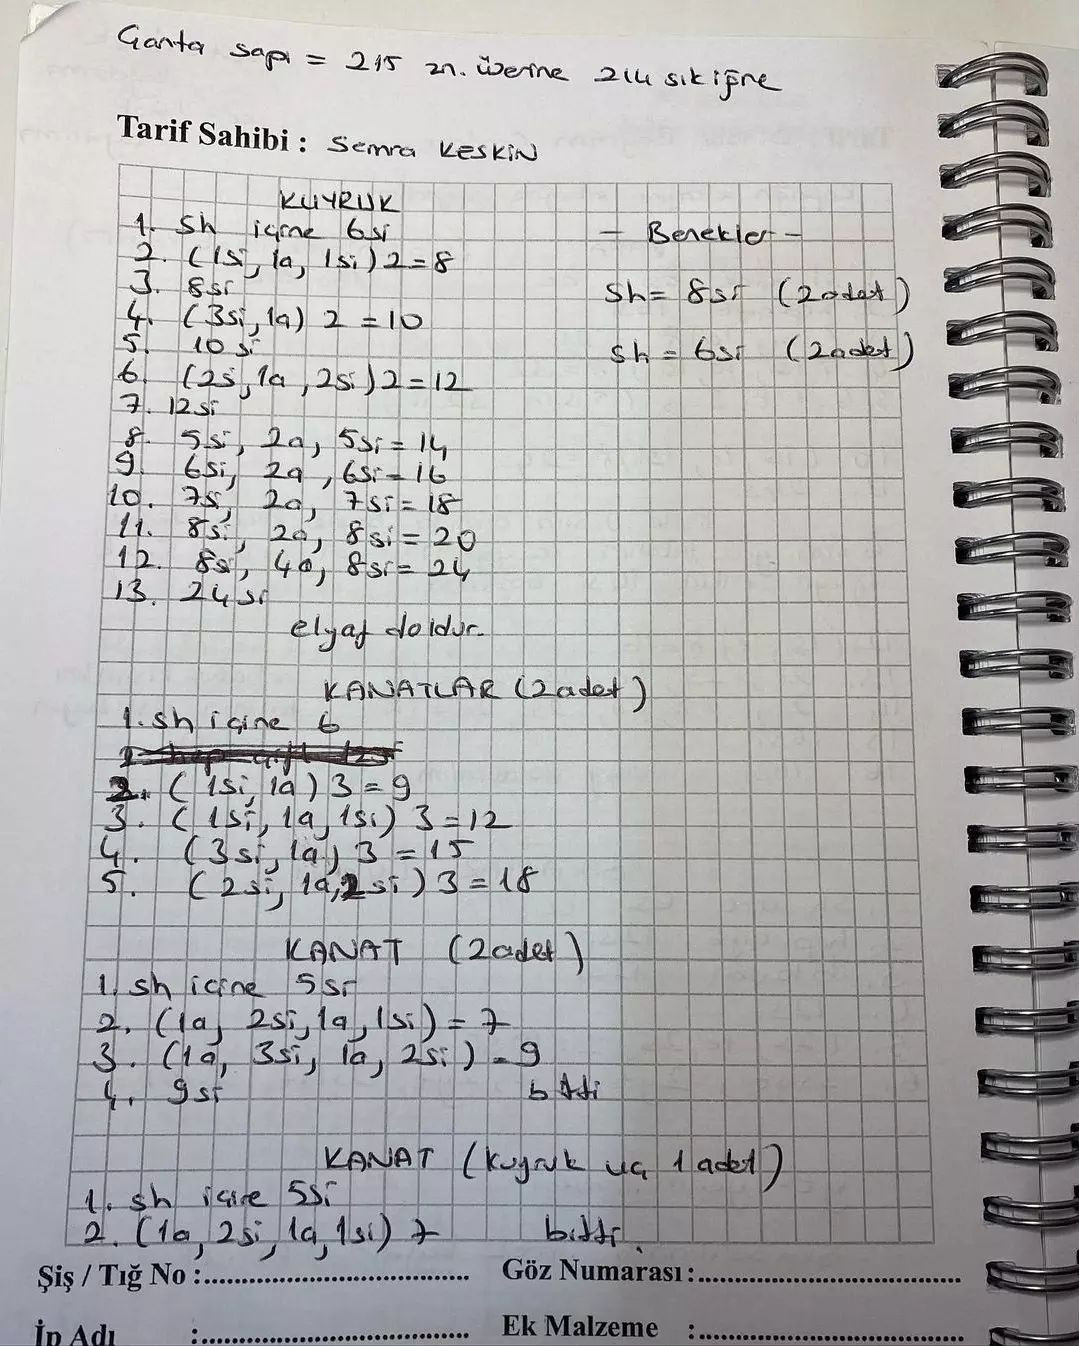 Çanta sapı = 215 zn. üzerine 214 sık iğne
Tarif Sahibi : Semra KESKİN
KUYRUK
1. sh içine 6si
2. (1si, 1a, 1si) 2=8
3. 8si
4. (3si, 1a) 2 = 10
5. 10 si
6. (2si, 1a, 2si) 2=12
7. 12si
8. 5si, 2a, 5si = 14
9. 6si, 2a, 6si = 16
10. 7si, 2a, 7si = 18
11. 8si, 2a, 8si = 20
12. 8si, 4a, 8si = 24
13. 24 si
elyaf doldur.
- Benekler -
sh = 8si (2 adet)
sh = 6si (2 adet)
KANATLAR (2 adet)
1. sh içine 6
2. (1si, 1a) 3 = 9
3. (1si, 1a, 1si) 3 = 12
4. (3si, 1a) 3 = 15
5. (2si, 1a, 2si) 3 = 18
KANAT (2 adet)
1. sh içine 5si
2. (1a, 2si, 1a, 1si) = 7
3. (1a, 3si, 1a, 2si) = 9
4. 9si bitti
KANAT (kuyruk uç 1 adet)
1. sh içine 5si
2. (1a, 2si, 1a, 1si) 7 bitti.
Şiş / Tığ No :
Göz Numarası :
İp Adı :
Ek Malzeme :